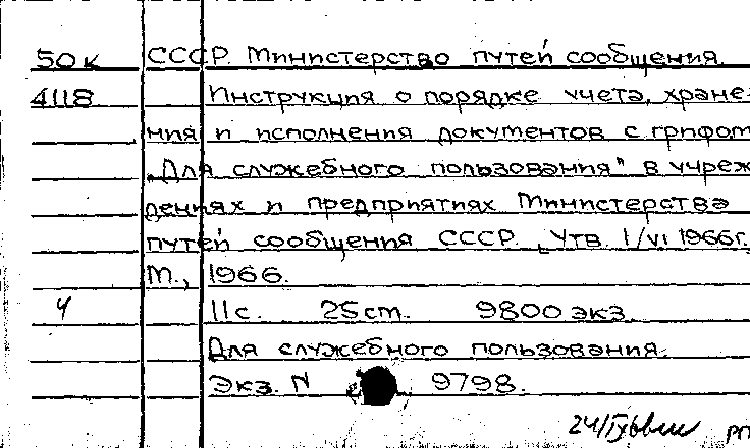 50к СССР. Министерство путей сообщения.
4118 Инструкция о порядке учета, хране-
ния и исполнения документов с грифом
„Для служебного пользования" в учреж-
дениях и предприятиях Министерства
путей сообщения СССР. Утв. 1/VI 1966г.
М., 1966.
4 11с. 25см. 9800 экз.
Для служебного пользования.
Экз. N 9798.